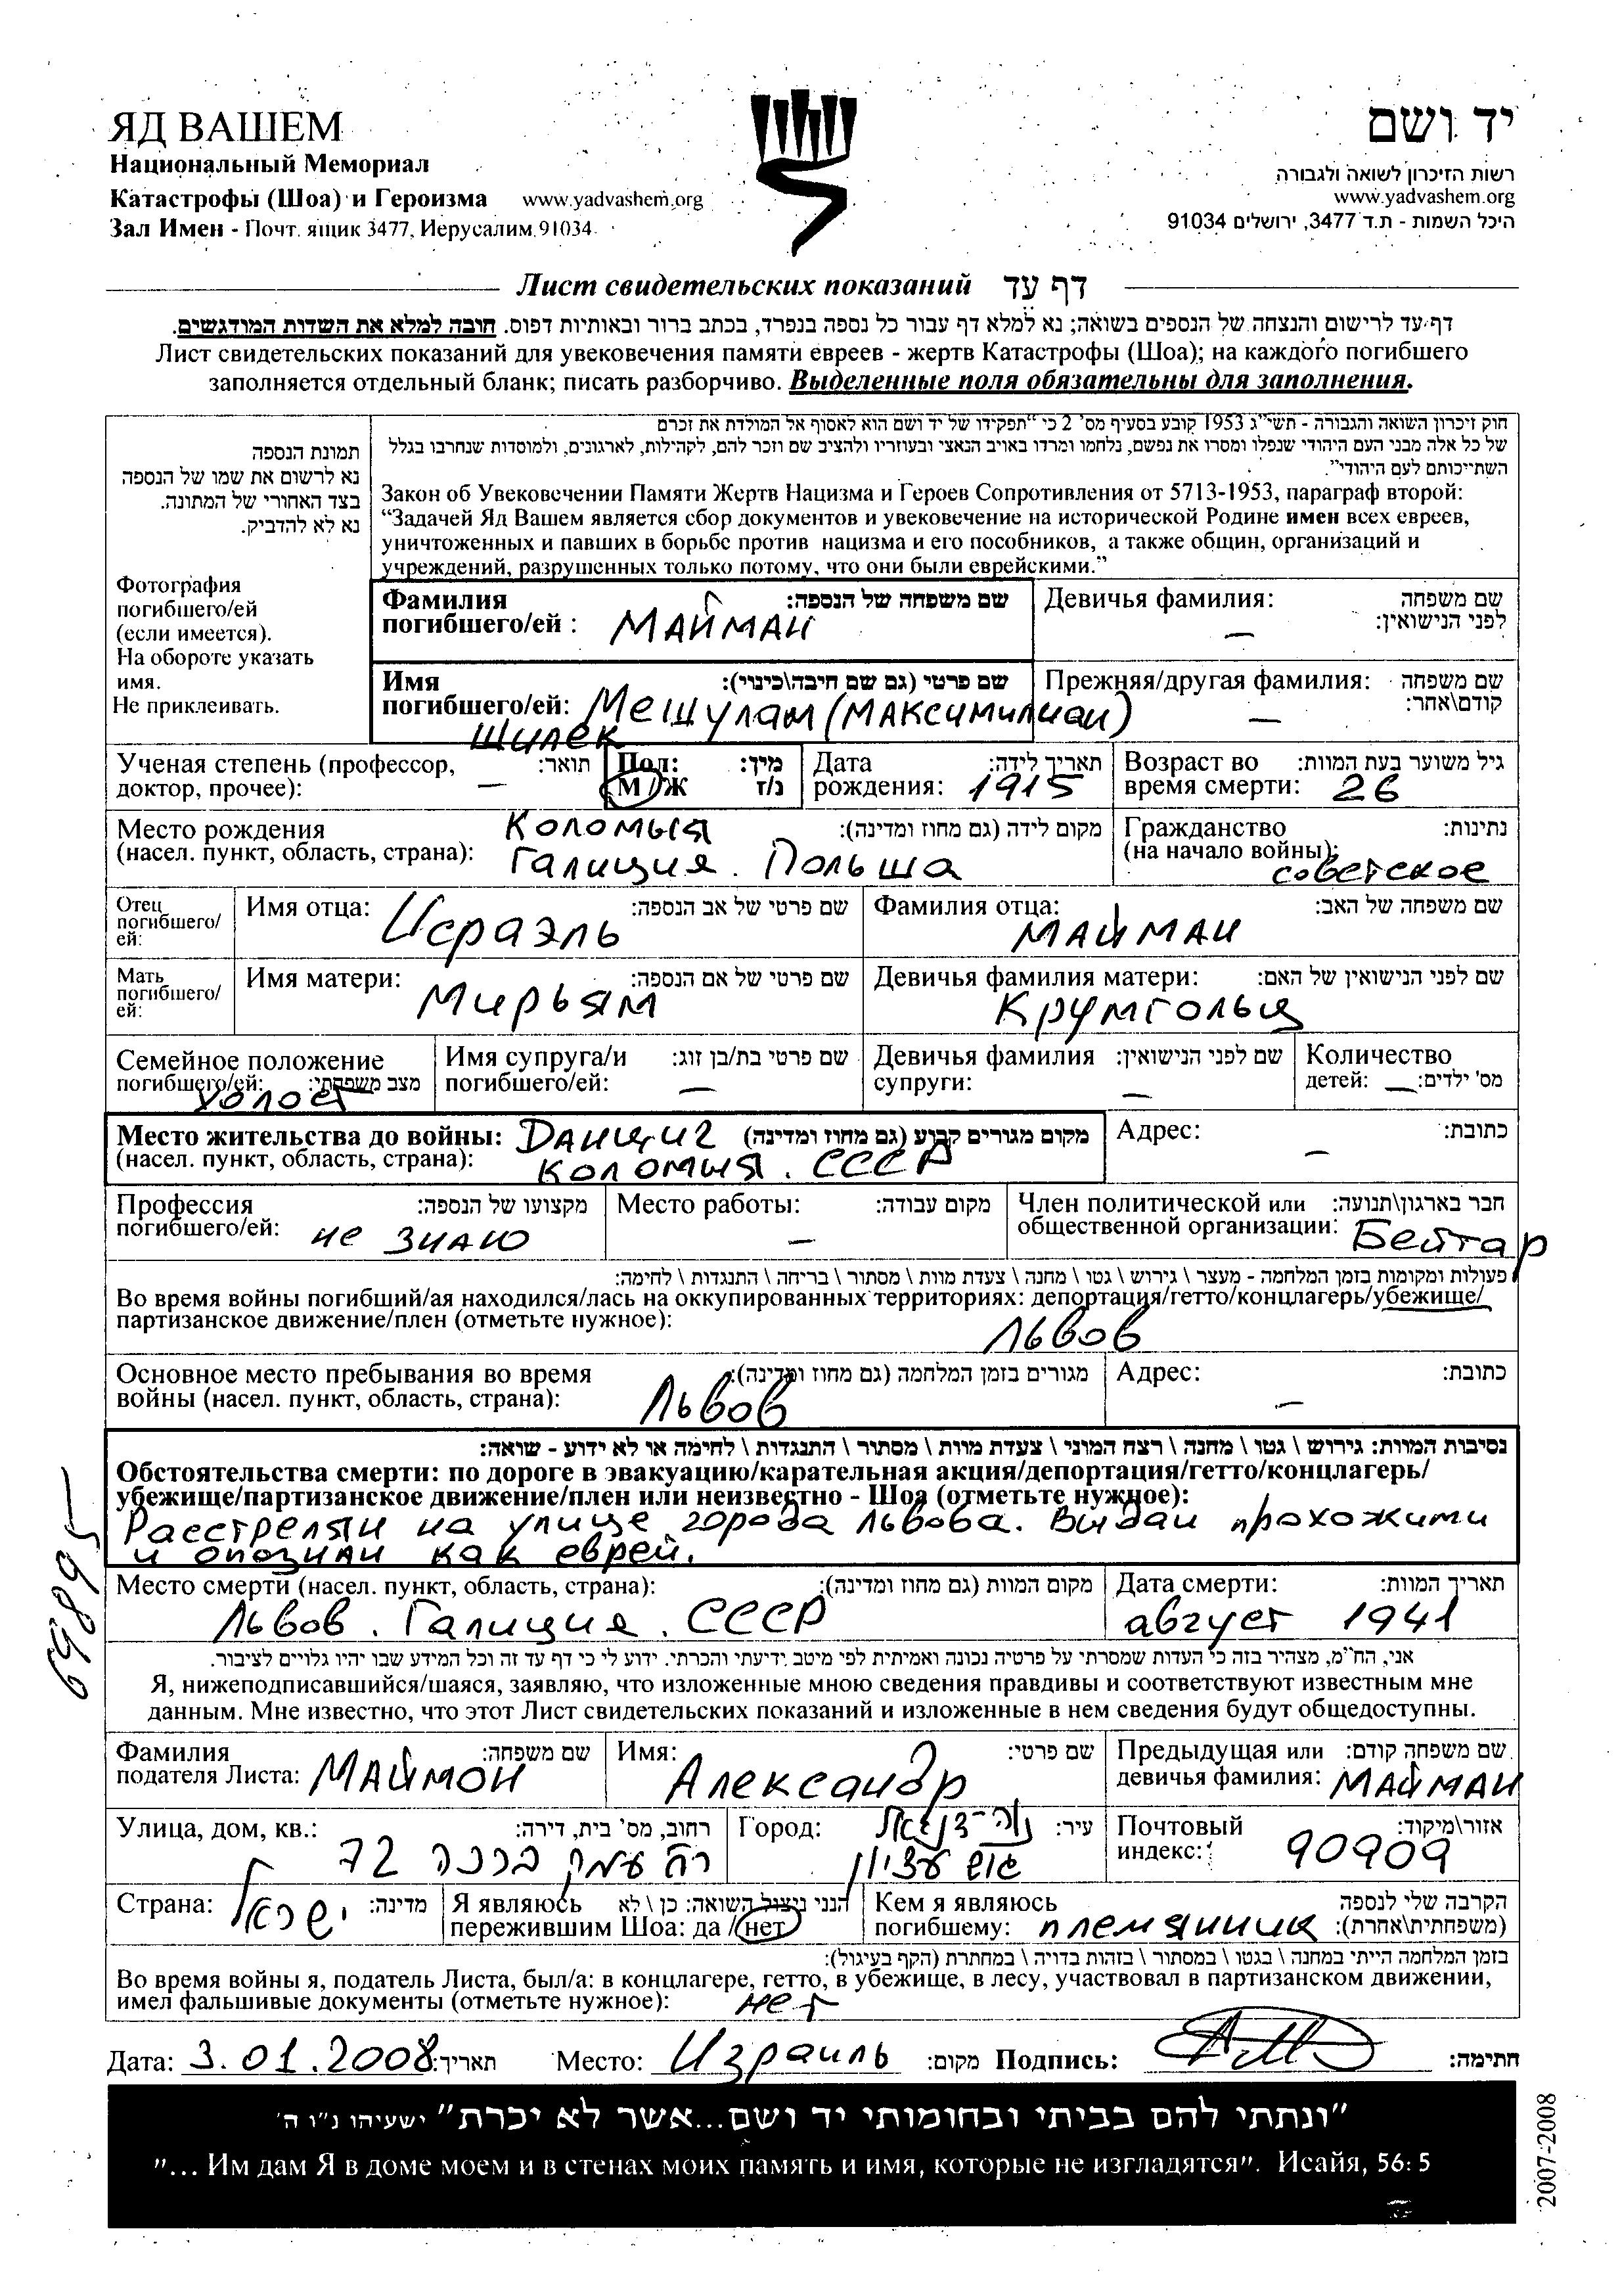 ЯД ВАШЕМ
Национальный Мемориал
Катастрофы (Шоа) и Героизма www.yadvashem.org
Зал Имен - Почт. ящик 3477, Иерусалим 91034
יד ושם
רשות הזיכרון לשואה ולגבורה
www.yadvashem.org
היכל השמות - ת.ד 3477, ירושלים 91034
Лист свидетельских показаний דף עד
דף עד לרישום והנצחה של הנספים בשואה; נא למלא דף עבור כל נספה בנפרד, בכתב ברור ובאותיות דפוס. חובה למלא את השדות המודגשים.
Лист свидетельских показаний для увековечения памяти евреев - жертв Катастрофы (Шоа); на каждого погибшего
заполняется отдельный бланк; писать разборчиво. Выделенные поля обязательны для заполнения.
תמונת הנספה
נא לרשום את שמו של הנספה
בצד האחורי של המתונה.
נא לא להדביק.
Фотография
погибшего/ей
(если имеется).
На обороте указать
имя.
Не приклеивать.
חוק זיכרון השואה והגבורה - תשי"ג 1953 קובע בסעיף מס' 2 כי "תפקידו של יד ושם הוא לאסוף אל המולדת את זכרם
של כל אלה מבני העם היהודי שנפלו ומסרו את נפשם, נלחמו ומרדו באויב הנאצי ובעוזריו ולהציב שם וזכר להם, לקהילות, לארגונים, ולמוסדות שנחרבו בגלל
השתייכותם לעם היהודי".
Закон об Увековечении Памяти Жертв Нацизма и Героев Сопротивления от 5713-1953, параграф второй:
"Задачей Яд Вашем является сбор документов и увековечение на исторической Родине имен всех евреев,
уничтоженных и павших в борьбе против нацизма и его пособников, а также общин, организаций и
учреждений, разрушенных только потому, что они были еврейскими."
Фамилия שם משפחה של הנספה:
погибшего/ей : Майман
Девичья фамилия: שם משפחה
לפני הנישואין: –
Имя שם פרטי (גם שם חיבה\כינוי):
погибшего/ей: Мешулам (Максимилиан)
Шилек
Прежняя/другая фамилия: שם משפחה
קודם\אחר: –
Ученая степень (профессор, תואר:
доктор, прочее): –
Пол: מין:
М/Ж נ/ז
Дата תאריך לידה:
рождения: 1915
Возраст во גיל משוער בעת המוות:
время смерти: 26
Место рождения Коломыя מקום לידה (גם מחוז ומדינה):
(насел. пункт, область, страна): Галиция. Польша
Гражданство נתינות:
(на начало войны): советское
Отец
погибшего/
ей:
Имя отца: Исраэль שם פרטי של אב הנספה:
Фамилия отца: Майман שם משפחה של האב:
Мать
погибшего/
ей:
Имя матери: Мирьям שם פרטי של אם הנספה:
Девичья фамилия матери: Крумгольц שם לפני הנישואין של האם:
Семейное положение
погибшего/ей: холост מצב משפחתי:
Имя супруга/и שם פרטי בת/בן זוג:
погибшего/ей: –
Девичья фамилия שם לפני הנישואין:
супруги: –
Количество
детей: – מס' ילדים:
Место жительства до войны: Данциг מקום מגורים קבוע (גם מחוז ומדינה)
(насел. пункт, область, страна): Коломыя. СССР
Адрес: – כתובת:
Профессия מקצועו של הנספה:
погибшего/ей: не знаю
Место работы: – מקום עבודה:
Член политической или חבר בארגון\תנועה:
общественной организации: Бейтар
פעולות ומקומות בזמן המלחמה - מעצר \ גירוש \ גטו \ מחנה \ צעדת מוות \ מסתור \ בריחה \ התנגדות \ לחימה:
Во время войны погибший/ая находился/лась на оккупированных территориях: депортация/гетто/концлагерь/убежище/
партизанское движение/плен (отметьте нужное): Львов
Основное место пребывания во время מגורים בזמן המלחמה (גם מחוז ומדינה):
войны (насел. пункт, область, страна): Львов
Адрес: – כתובת:
נסיבות המוות: גירוש \ גטו \ מחנה \ רצח המוני \ צעדת מוות \ מסתור \ התנגדות \ לחימה או לא ידוע - שואה:
Обстоятельства смерти: по дороге в эвакуацию/карательная акция/депортация/гетто/концлагерь/
убежище/партизанское движение/плен или неизвестно - Шоа (отметьте нужное):
Расстрелян на улице города Львова. Выдан прохожими
и опознан как еврей.
Место смерти (насел. пункт, область, страна): מקום המוות (גם מחוז ומדינה):
Львов. Галиция. СССР
Дата смерти: תאריך המוות:
август 1941
אני, הח"מ, מצהיר בזה כי העדות שמסרתי על פרטיה נכונה ואמיתית לפי מיטב ידיעתי והכרתי. ידוע לי כי דף עד זה וכל המידע שבו יהיו גלויים לציבור.
Я, нижеподписавшийся/шаяся, заявляю, что изложенные мною сведения правдивы и соответствуют известным мне
данным. Мне известно, что этот Лист свидетельских показаний и изложенные в нем сведения будут общедоступны.
Фамилия שם משפחה:
подателя Листа: Маймон
Имя: Александр שם פרטי:
Предыдущая или שם משפחה קודם:
девичья фамилия: Майман
Улица, дом, кв.: רחוב, מס' בית, דירה:
רח עמק ברכה 72
Город: נווה-דניאל עיר:
גוש עציון
Почтовый אזור\מיקוד:
индекс: 90909
Страна: ישראל מדינה:
Я являюсь הנני ניצול השואה: כן \ לא
пережившим Шоа: да / нет
Кем я являюсь הקרבה שלי לנספה
погибшему: племянник (משפחתית\אחרת):
בזמן המלחמה הייתי במחנה \ בגטו \ במסתור \ בזהות בדויה \ במחתרת (הקף בעיגול):
Во время войны я, податель Листа, был/а: в концлагере, гетто, в убежище, в лесу, участвовал в партизанском движении,
имел фальшивые документы (отметьте нужное): нет
Дата: 3.01.2008 תאריך: Место: Израиль מקום: Подпись: חתימה:
"ונתתי להם בביתי ובחומותי יד ושם...אשר לא יכרת" ישעיהו נ"ו ה'
"... Им дам Я в доме моем и в стенах моих память и имя, которые не изгладятся". Исайя, 56: 5
69895
2007-2008